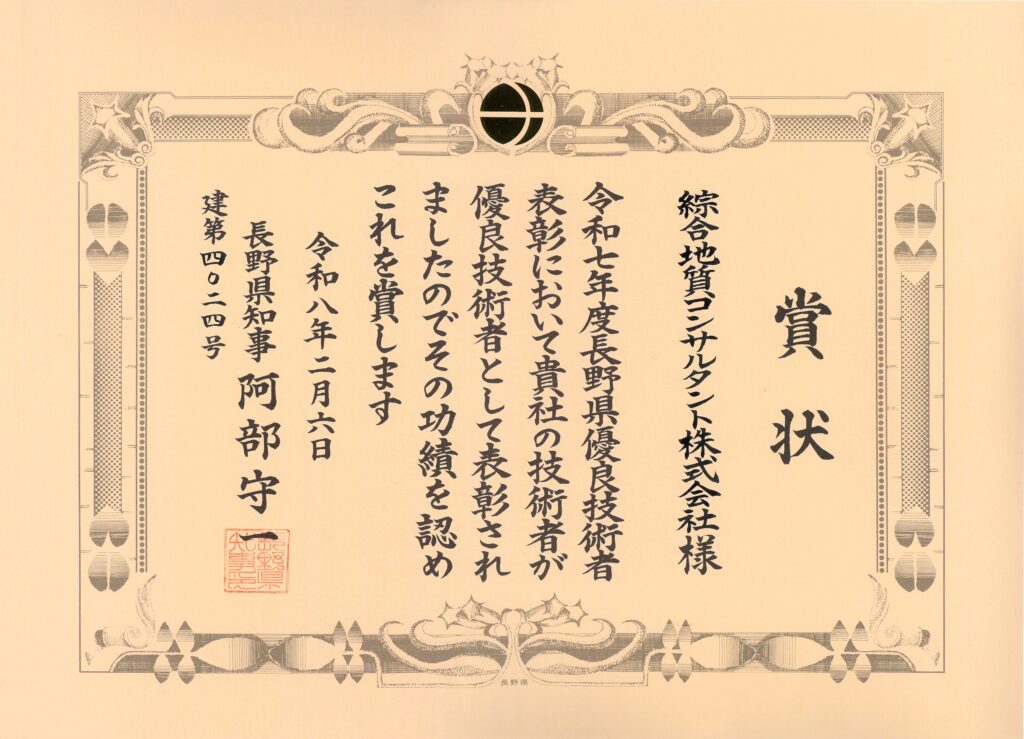 賞状
綜合地質コンサルタント株式会社様
令和七年度長野県優良技術者
表彰において貴社の技術者が
優良技術者として表彰され
ましたのでその功績を認め
これを賞します
令和八年二月六日
長野県知事 阿部守一
建第四〇二四号
長野県知事之印
長野県